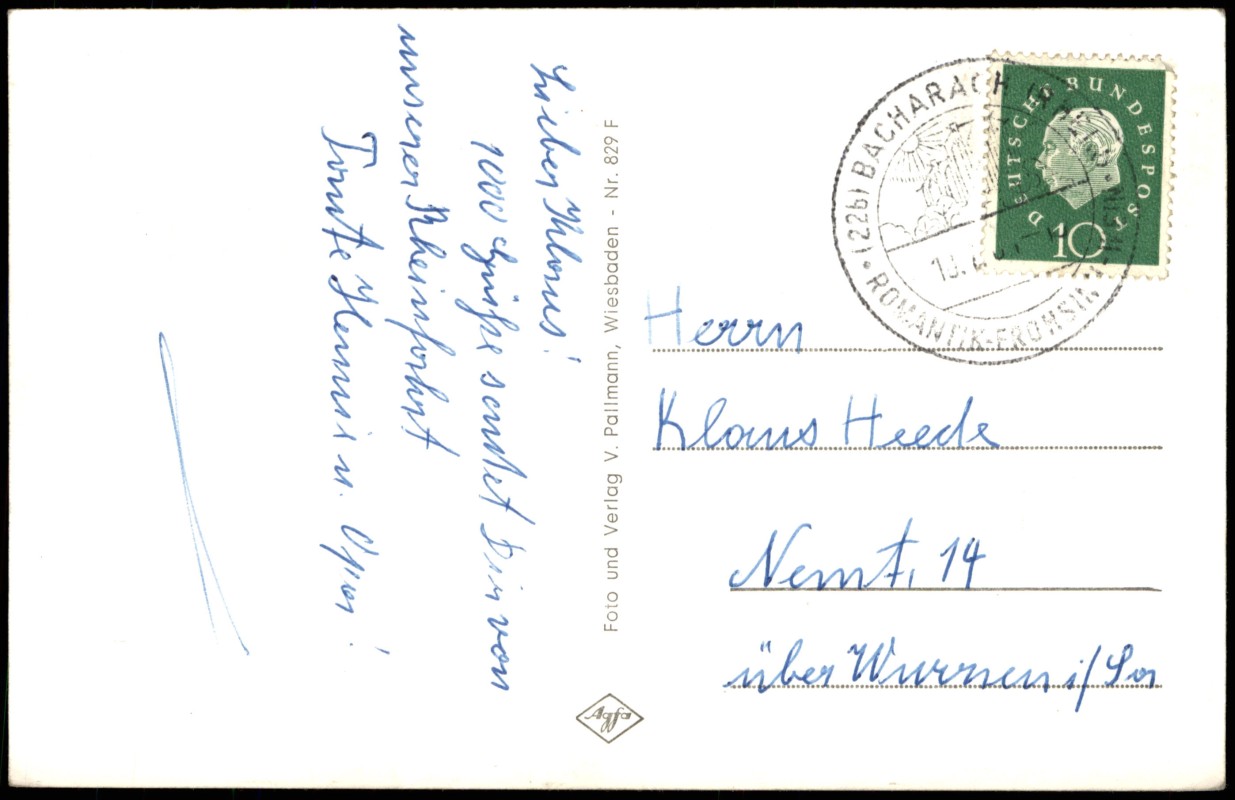 Lieber Klaus!
1000 Grüße sendet Dir von
unserer Rheinfahrt
Tante Hemmi u. Opa!
Foto und Verlag V. Pallmann, Wiesbaden - Nr. 829 F
Agfa
(22b) BACHARACH
ROMANTIK-FROHSINN-WEIN
DEUTSCHE BUNDESPOST
10
Herrn
Klaus Heede
Nemt, 14
über Wurzen i/Sa